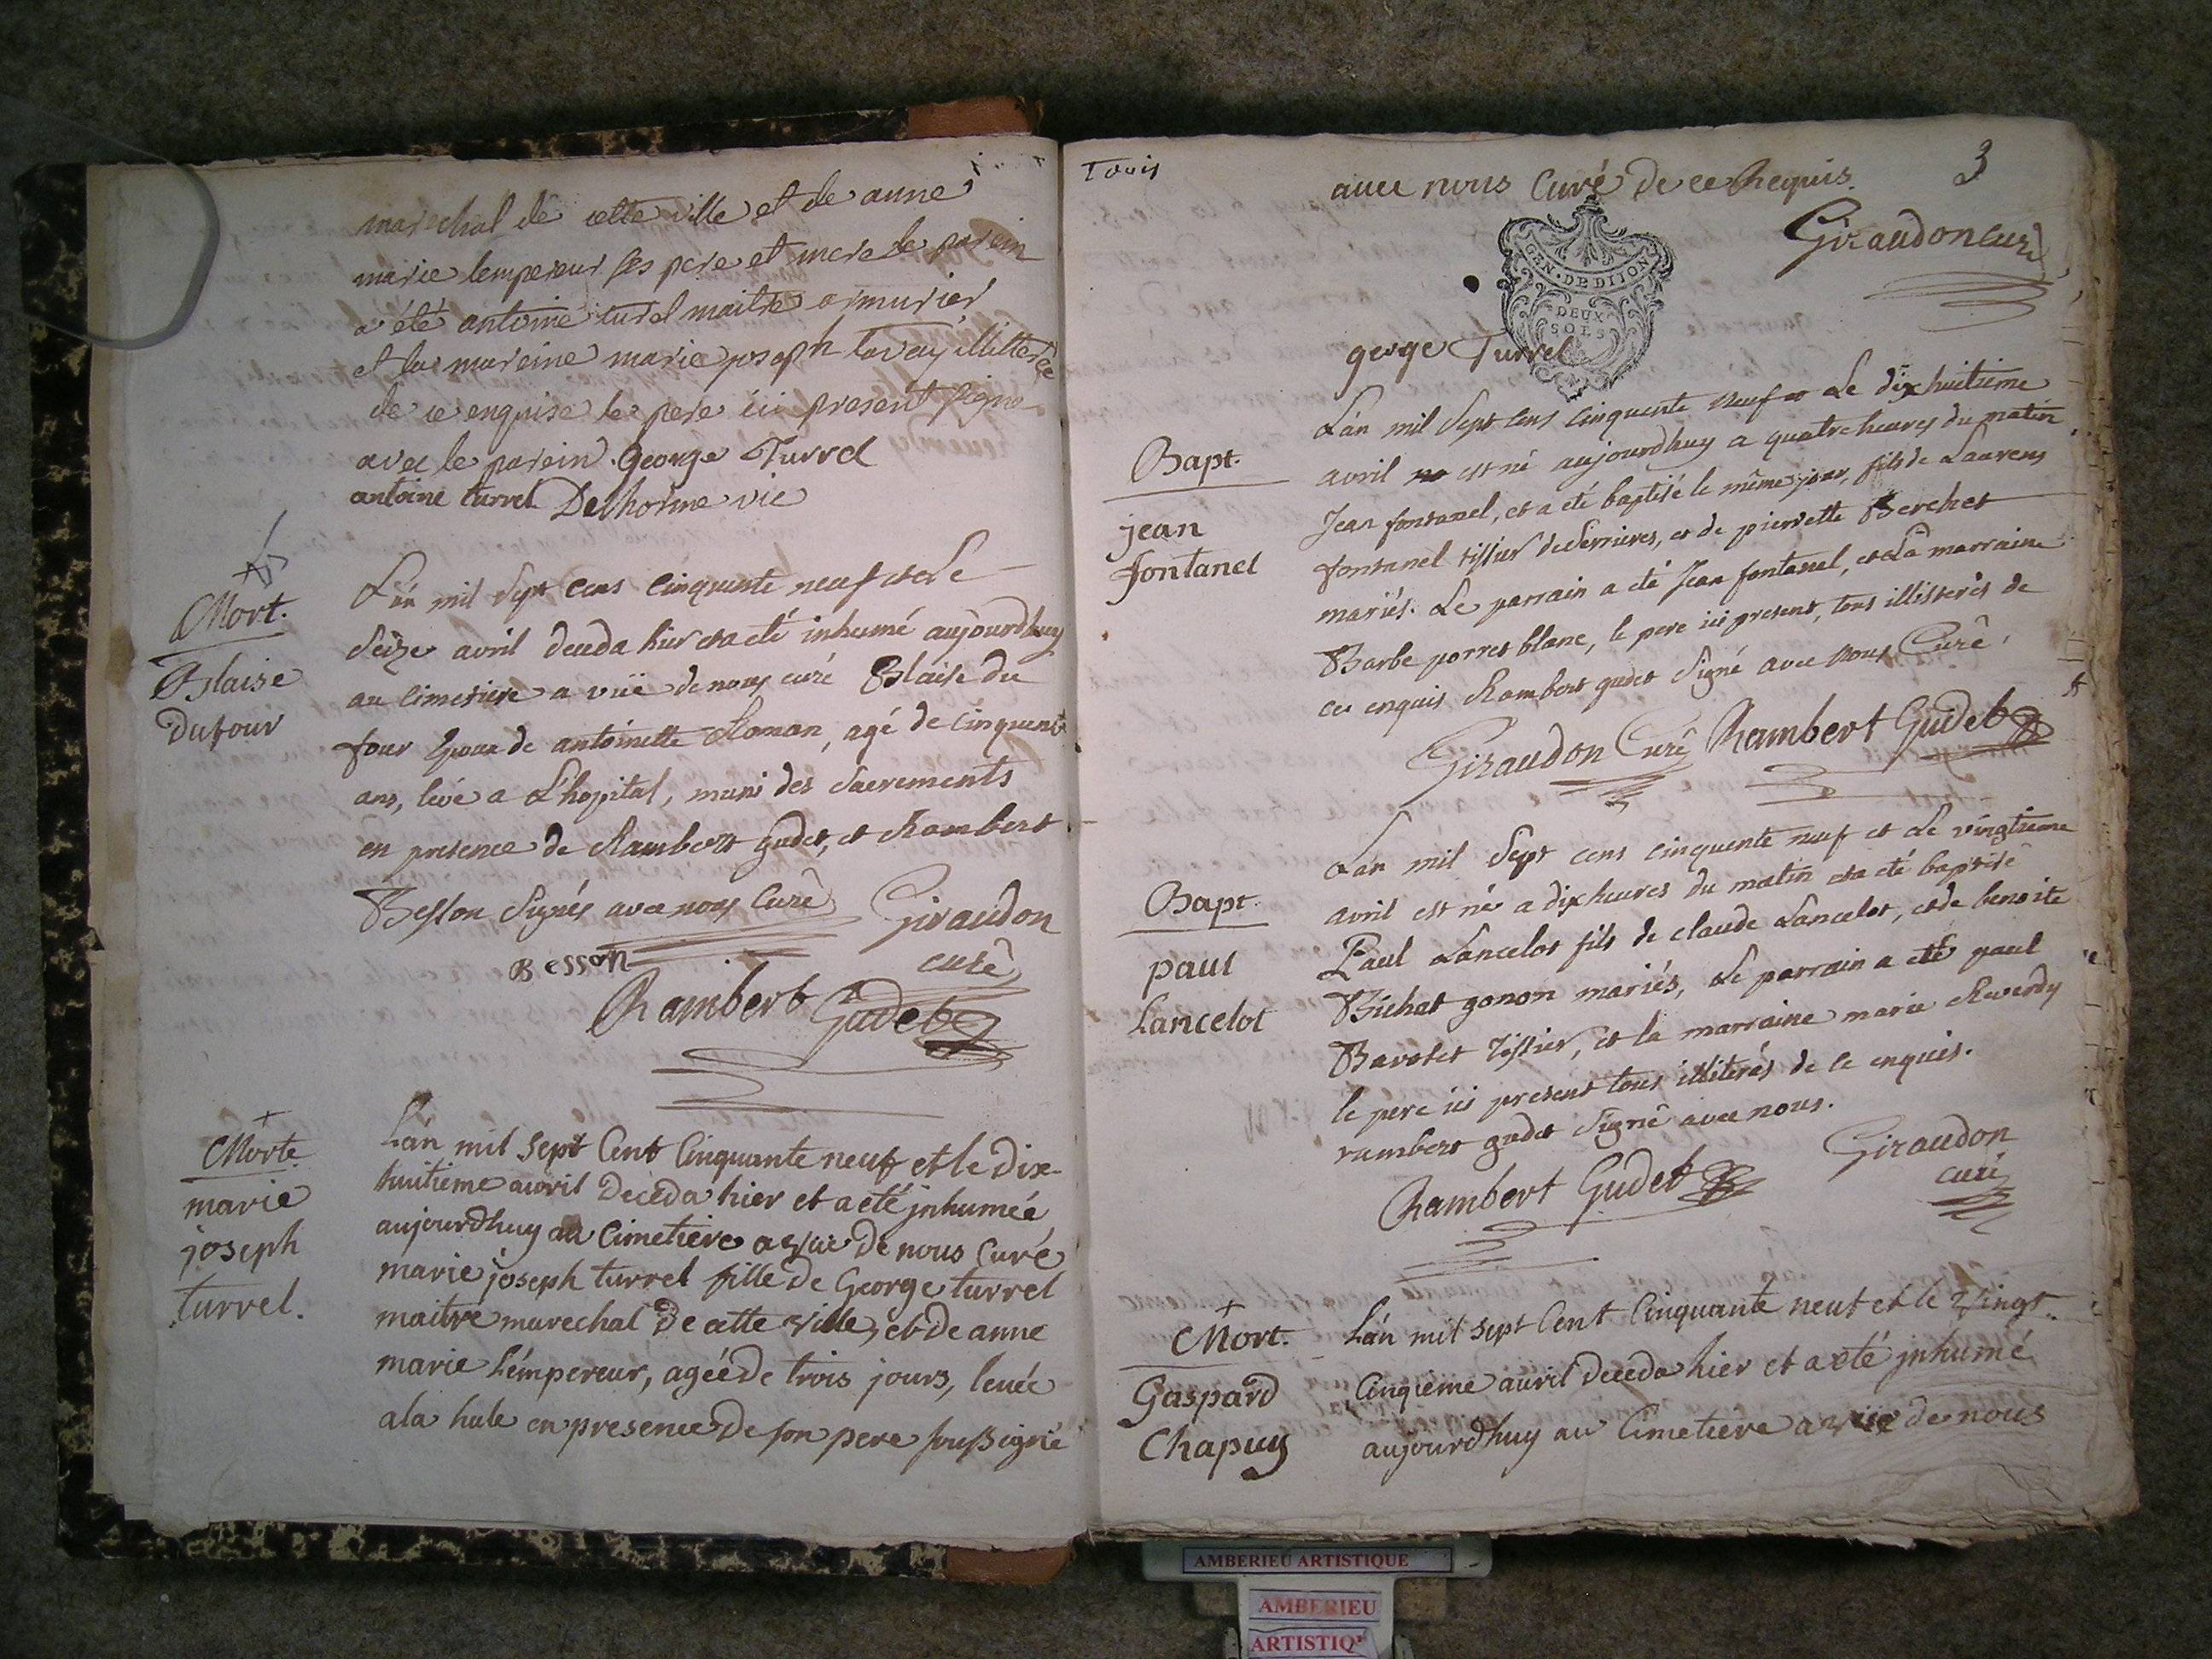 marechal de cette ville et de anne
marie lempereur ses pere et mere le parein
a été antoine turel maitre armurier
et la mareine marie joseph tavay illiterée
de ce enquise le pere ici present signe
avec le parein. George Turrel
antoine turrel Delhorme vic
Mort.
Blaise
dufour
L'an mil Sept Cens Cinquente neuf et Le
Seize avril deceda hier et a eté inhumé aujourdhuy
au Cimetiere a vüe de nous curé Blaise du
four Epoux de antoinette Roman, agé de Cinquente
ans, levé a L'hopital, muni des Sacrements
en presence de Rambert Gudet, et Rambert
Besson Signés avec nous Curé Giraudon
curé
Besson
Rambert Gudet
Morte
marie
joseph
turrel.
L'an mil Sept Cent Cinquante neuf et le Dix-
huitieme avril Deceda hier et a eté jnhumée
aujourdhuy au Cimetiere a vüe De nous Curé
marie joseph turrel fille De George turrel
maitre marechal De cette ville, et De anne
marie L'émpereur, agée De trois jours, levée
a la hale en presence De son pere soussigné
Trois
3
avec nous Curé de ce Requis.
Giraudon Curé
GEN. DE DIJON
DEUX
SOLS
gerge Turrel
Bapt.
jean
fontanel
L'an mil Sept Cens Cinquente neuf et Le dix huitieme
avril est né aujourdhuy a quatre heures du matin
Jean fontanel, et a eté baptisé le même jour, fils de Laurens
fontanel tissier de Serrieres, et de pierrette Berchet
mariés. Le parrain a eté Jean fontanel, et La marraine
Barbe porret blanc, le pere ici present, tous illisterés de
ce enquis Rambert gudet Signé avec nous Curé.
Giraudon Curé Rambert Gudet
Bapt.
paul
Lancelot
L'an mil Sept cens cinquente neuf et Le vingtieme
avril est né a dix heures du matin et a eté baptisé
Paul Lancelot fils de claude Lancelot, et de benoite
Bichat gonon mariés, Le parrain a eté paul
Bavolet Tissier, et la marraine marie Reverdy
le pere ici present tous illiterés de ce enquis.
rambert gudet Signé avec nous.
Rambert Gudet Giraudon
curé
Mort.
Gaspard
Chapuy
L'an mil Sept Cent Cinquante neuf et le Vingt-
Cinqieme avril deceda hier et a eté jnhumé
aujourdhuy au Cimetiere a vüe de nous
AMBERIEU ARTISTIQUE
AMBERIEU
ARTISTIQ